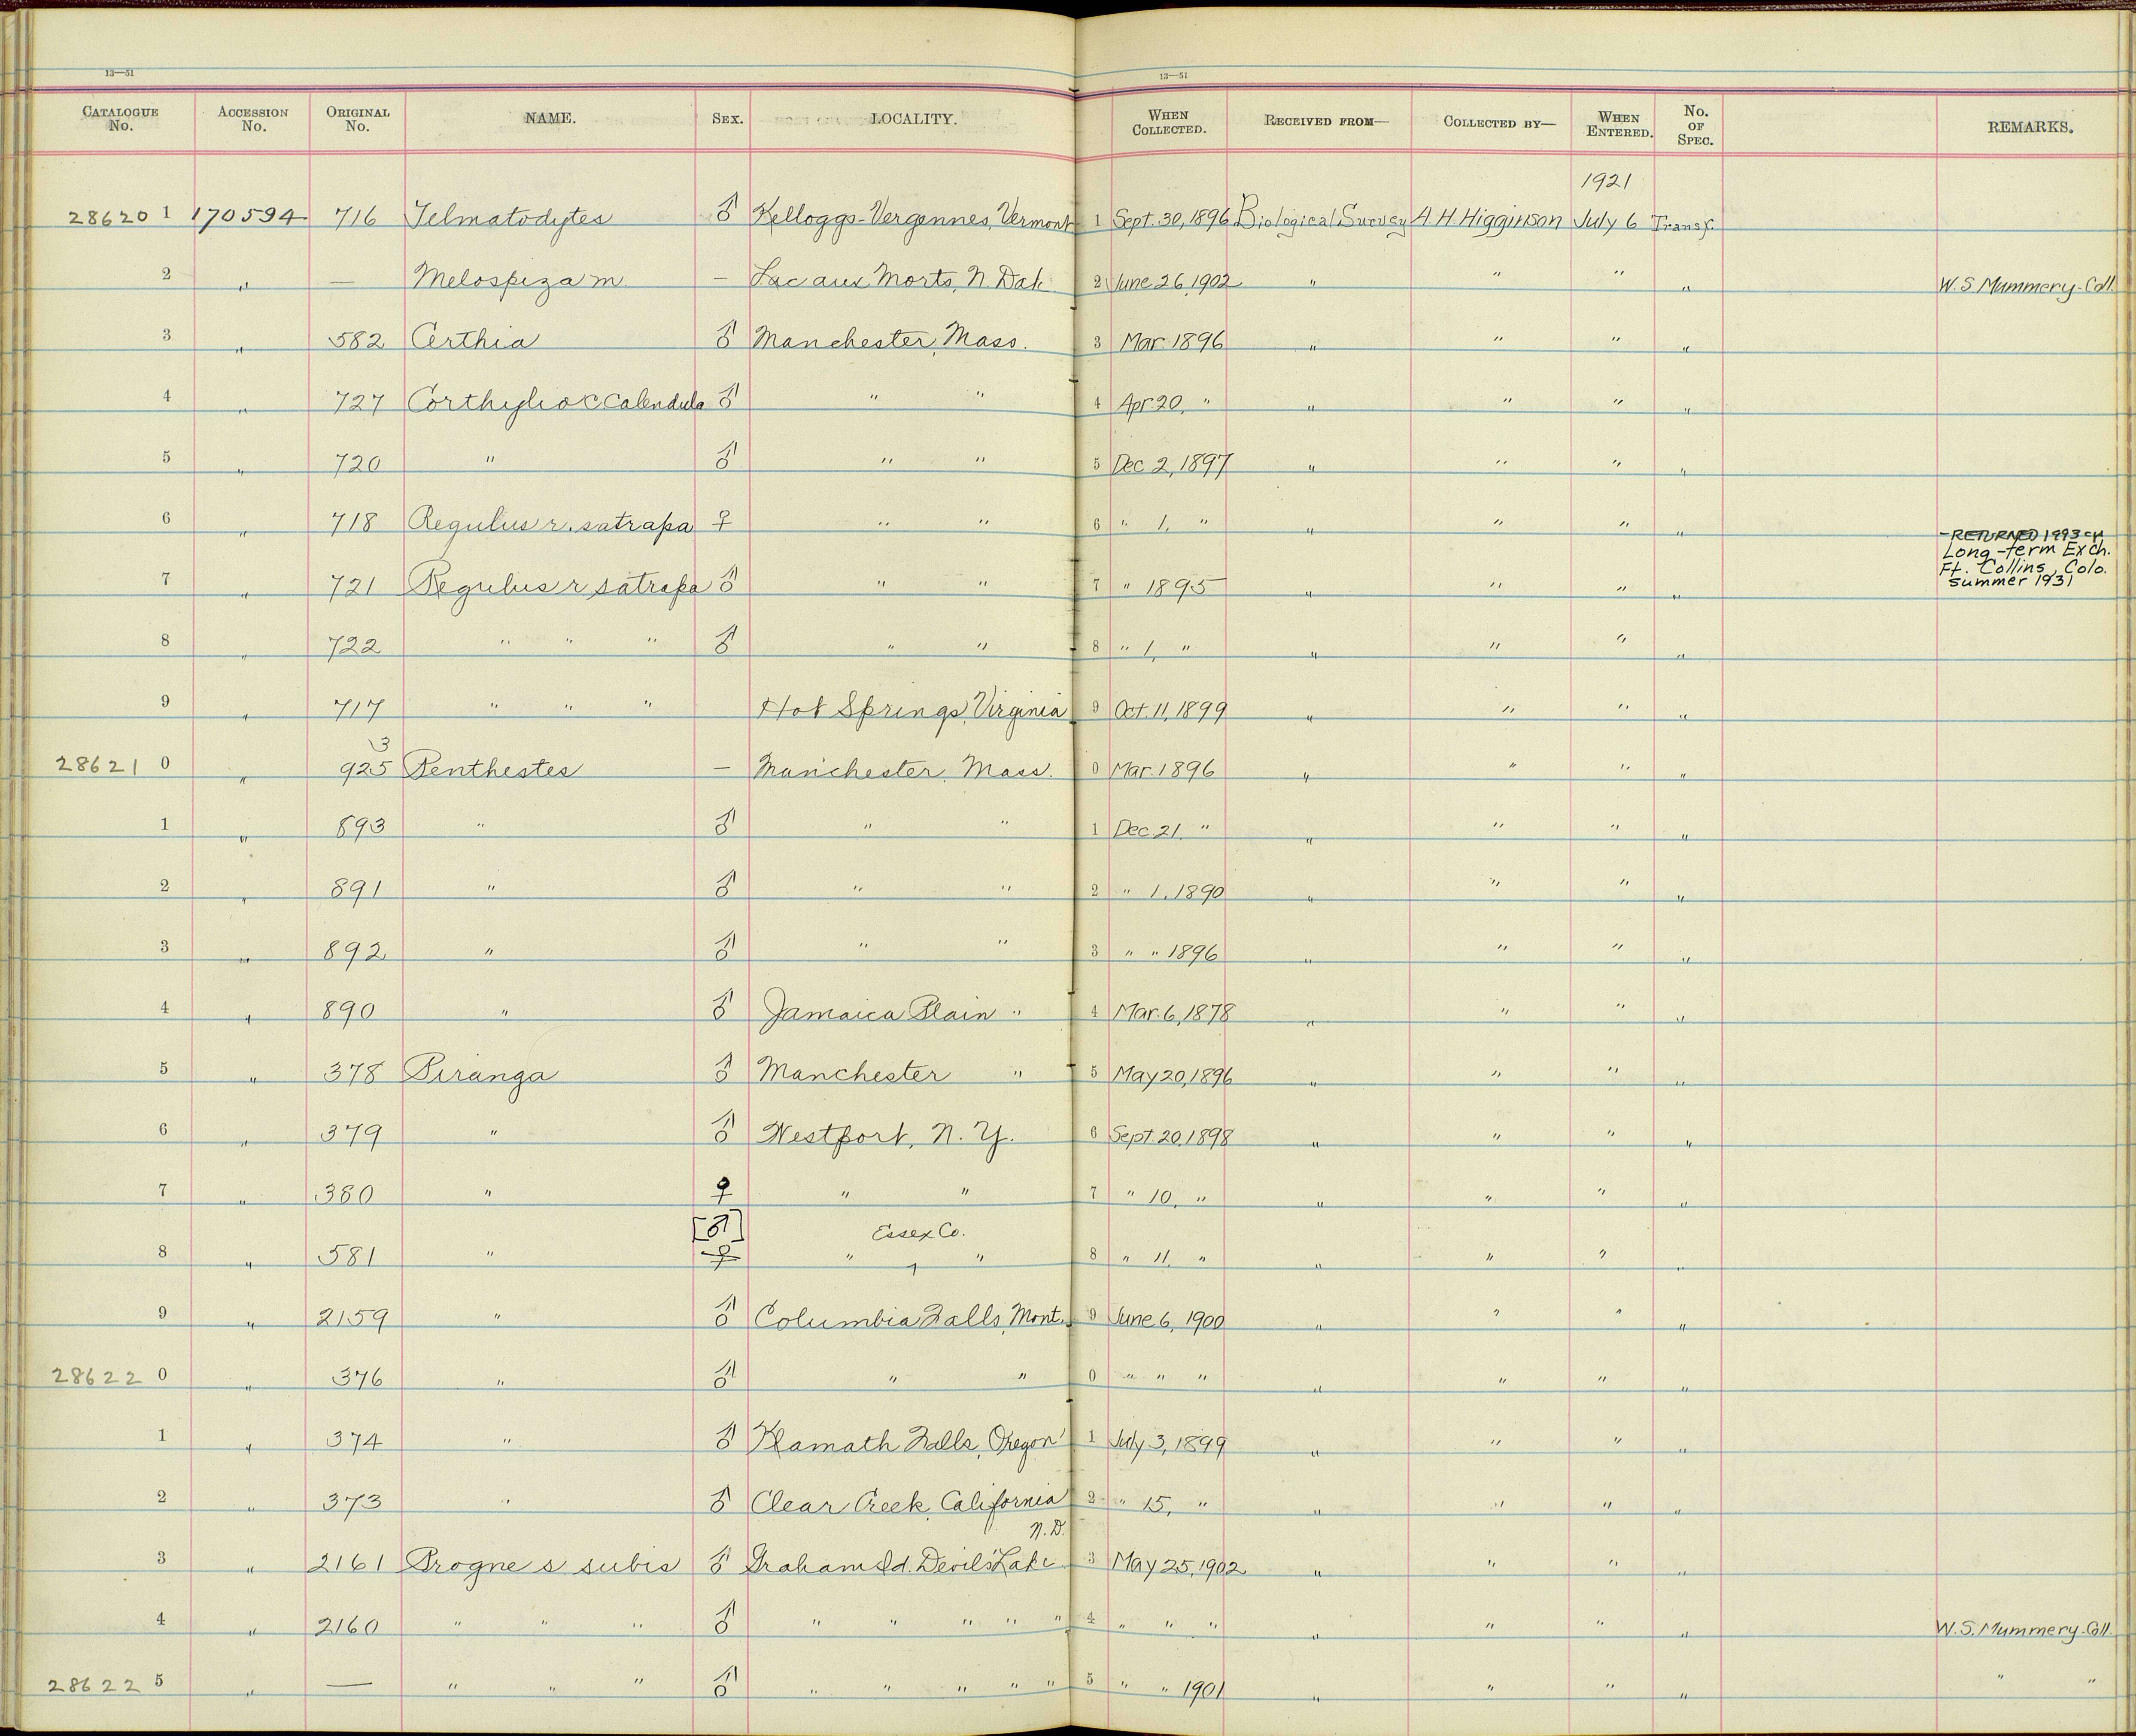 13—51 13—51
CATALOGUE No. ACCESSION No. ORIGINAL No. NAME. SEX. LOCALITY. WHEN COLLECTED. RECEIVED FROM— COLLECTED BY— WHEN ENTERED. No. OF SPEC. REMARKS.
1921
28620 1 170594 716 Telmatodytes ♂ Kelloggs-Vergennes, Vermont 1 Sept. 30, 1896 Biological Survey A H Higginson July 6 Transf.
2 " — Melospiza m. — Lac aux Morts, N. Dak 2 June 26, 1902 " " " " W. S Mummery-Coll.
3 " 582 Certhia ♂ Manchester, Mass. 3 Mar. 1896 " " " "
4 " 727 Corthylio c calendula ♂ " " 4 Apr. 20, " " " " "
5 " 720 " ♂ " " 5 Dec 2, 1897 " " " "
6 " 718 Regulus r. satrapa ♀ " " 6 " 1, " " " " "
-RETURNED 1993
Long-term Exch.
Ft. Collins, Colo.
summer 1931
7 " 721 Regulus r satrapa ♂ " " 7 " 1895 " " " "
8 " 722 " " " ♂ " " 8 " 1, " " " " "
9 " 717 " " " Hot Springs, Virginia 9 Oct. 11, 1899 " " " "
3
28621 0 " 925 Penthestes — Manchester, Mass. 0 Mar. 1896 " " " "
1 " 893 " ♂ " " 1 Dec 21. " " " " "
2 " 891 " ♂ " " 2 " 1, 1890 " " " "
3 " 892 " ♂ " " 3 " " 1896 " " " "
4 " 890 " ♂ Jamaica Plain " 4 Mar. 6, 1878 " " " "
5 " 378 Piranga ♂ Manchester " 5 May 20, 1896 " " " "
6 " 379 " ♂ Westport, N. Y. 6 Sept. 20, 1898 " " " "
7 " 380 " ♀ " " 7 " 10, " " " " "
[♂] Essex Co.
8 " 581 " ♀ " " 8 " 11, " " " " "
9 " 2159 " ♂ Columbia Falls, Mont. 9 June 6, 1900 " " " "
28622 0 " 376 " ♂ " " 0 " " " " " " "
1 " 374 " ♂ Klamath Falls, Oregon 1 July 3, 1899 " " " "
2 " 373 " ♂ Clear Creek, California 2 " 15, " " " " "
N. D.
3 " 2161 Progne s subis ♂ Graham Id. Devils Lake 3 May 25, 1902 " " " "
4 " 2160 " " " ♂ " " " " " 4 " " " " " " " W. S. Mummery-Coll.
28622 5 " — " " " ♂ " " " " " 5 " " 1901 " " " " " "